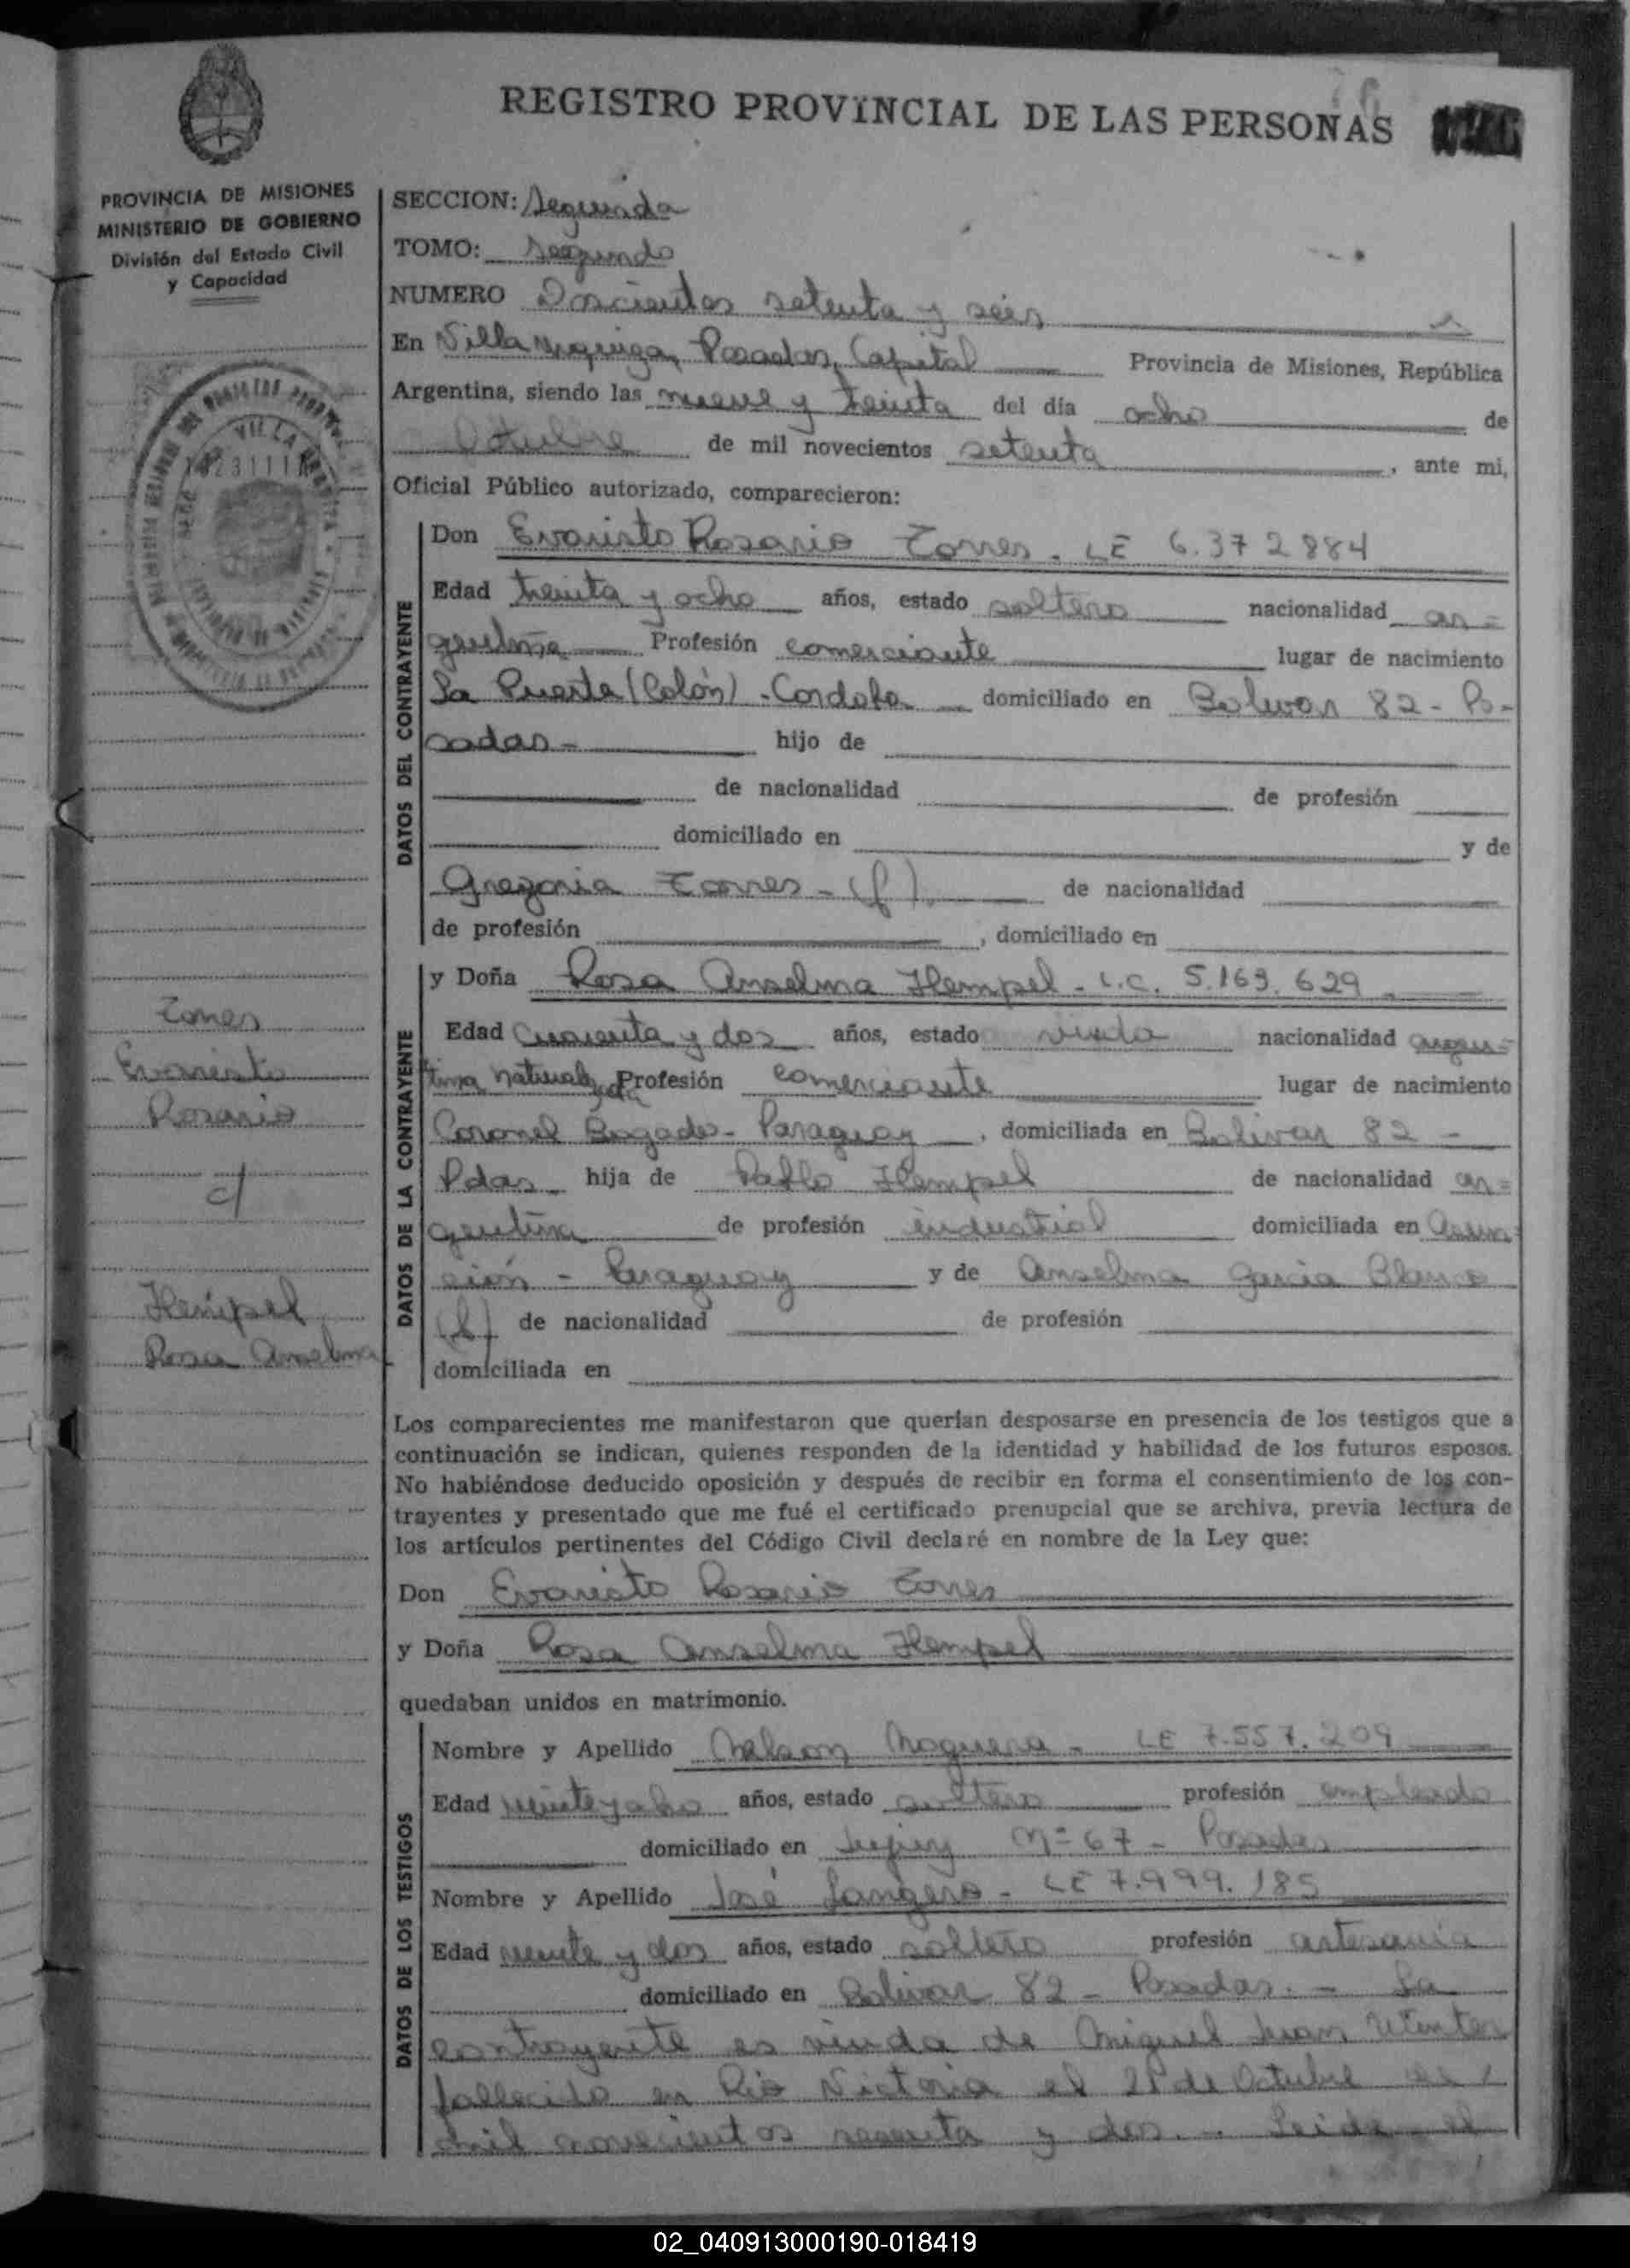 REGISTRO PROVINCIAL DE LAS PERSONAS
PROVINCIA DE MISIONES
MINISTERIO DE GOBIERNO
División del Estado Civil
y Capacidad
SECCION: Segunda
TOMO: Segundo
NUMERO Doscientos setenta y seis
En Villa Urquiza, Posadas, Capital Provincia de Misiones, República
Argentina, siendo las nueve y treinta del día ocho de
Octubre de mil novecientos setenta, ante mi,
Oficial Público autorizado, comparecieron:
DATOS DEL CONTRAYENTE
Don Evaristo Rosario Torres - LE 6.372884
Edad treinta y ocho años, estado soltero nacionalidad ar=
gentina Profesión comerciante lugar de nacimiento
La Puerta (Colón) - Cordoba domiciliado en Bolivar 82 - Po-
sadas - hijo de
de nacionalidad de profesión
domiciliado en y de
Gregoria Torres - (f). de nacionalidad
de profesión , domiciliado en
DATOS DE LA CONTRAYENTE
y Doña Rosa Anselma Hempel - L.C. 5.163.629
Edad Cuarenta y dos años, estado viuda nacionalidad argen=
tina naturalizada Profesión comerciante lugar de nacimiento
Coronel Bogado - Paraguay, domiciliada en Bolivar 82 -
Pdas. hija de Pablo Hempel de nacionalidad ar=
gentina de profesión industrial domiciliada en Asun=
ción - Paraguay y de Anselma Garcia Blanco
(f) de nacionalidad de profesión
domiciliada en
Torres
Evaristo
Rosario
c/
Hempel
Rosa Anselma
Los comparecientes me manifestaron que querían desposarse en presencia de los testigos que a
continuación se indican, quienes responden de la identidad y habilidad de los futuros esposos.
No habiéndose deducido oposición y después de recibir en forma el consentimiento de los con-
trayentes y presentado que me fué el certificado prenupcial que se archiva, previa lectura de
los artículos pertinentes del Código Civil declaré en nombre de la Ley que:
Don Evaristo Rosario Torres
y Doña Rosa Anselma Hempel
quedaban unidos en matrimonio.
DATOS DE LOS TESTIGOS
Nombre y Apellido Nelson Noguera - LE 7.557.209
Edad veinte y ocho años, estado soltero profesión empleado
domiciliado en Jujuy Nº 67 - Posadas
Nombre y Apellido José - LE 7.999.185
Edad veinte y dos años, estado soltero profesión artesania
domiciliado en Bolivar 82 - Posadas. - La
contrayente es viuda de Miguel Juan Winter
fallecido en Rio Victoria el 21 de Octubre de
mil novecientos sesenta y dos. - Leida el
02_040913000190-018419